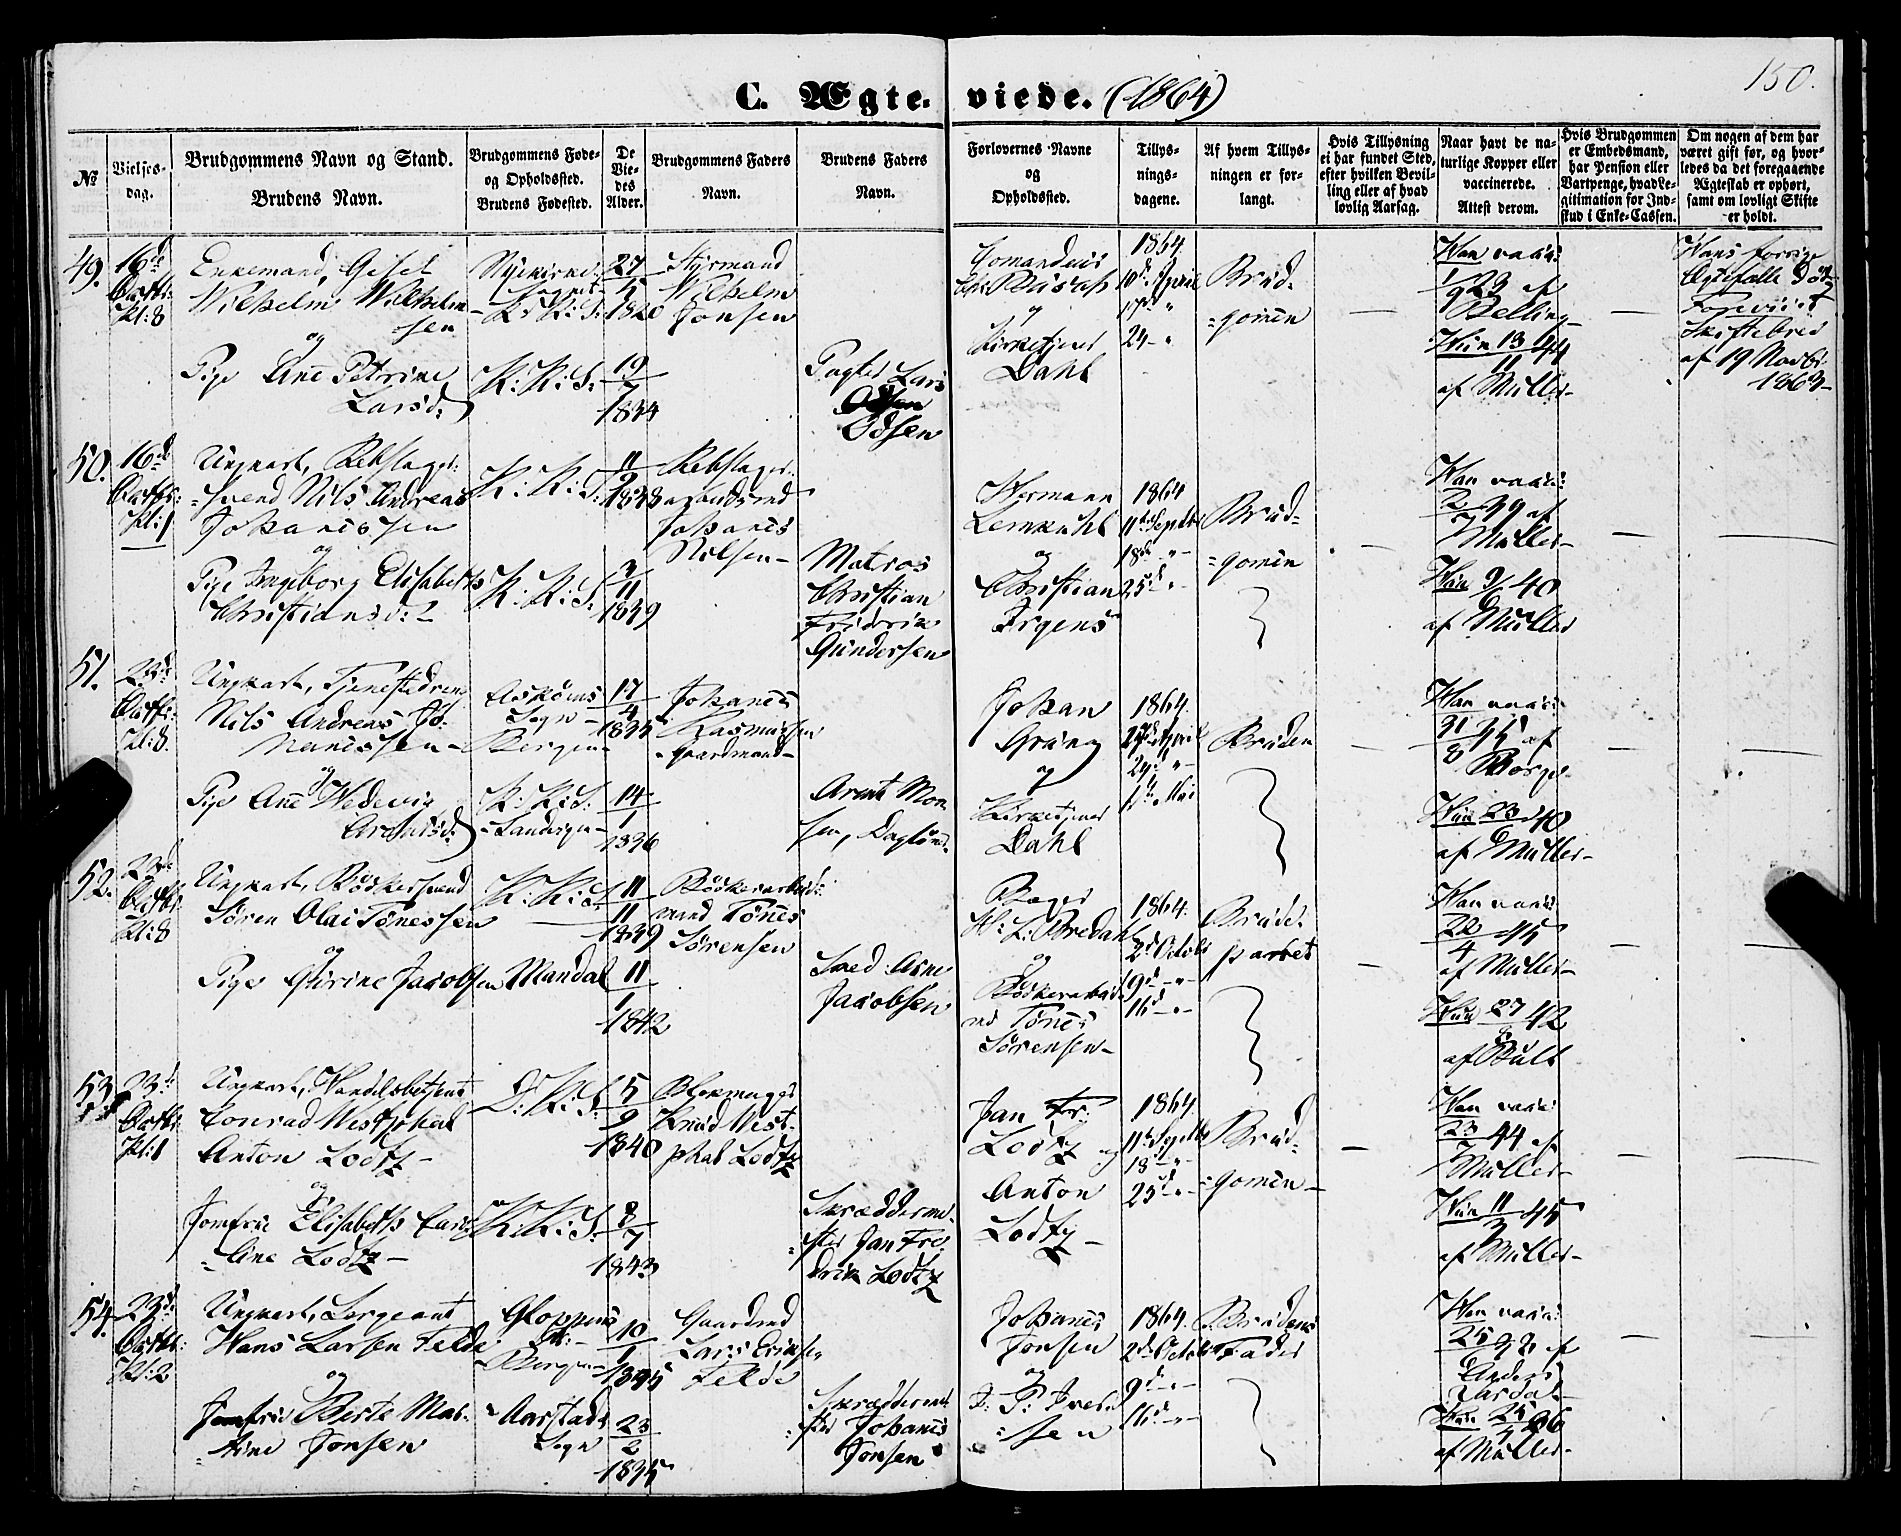 150.
C. Ægte- viede. (1864)
№
Vielses-
dag.
Brudgommens Navn og Stand.
Brudens Navn.
Brudgommens Føde-
og Opholdssted.
Brudens Fødested.
De
Vie-
des
Alder.
Brudgommens Faders
Navn.
Brudens Faders
Navn.
Forlovernes Navne
og
Opholdssted.
Tillys-
nings-
dagene.
Af hvem Tillys-
ningen er for-
langt.
Hvis Tillysning
ei har fundet Sted,
efter hvilken Bevil-
ling eller af hvad
lovlig Aarsag.
Naar havt de na-
turlige Kopper eller
vaccinerede.
Attest derom.
Hvis Brudgommen
er Embedsmand,
har Pension eller
Vartpenge, hvad Le-
gitimation for Ind-
skud i Enke-Cassen.
Om nogen af dem har
været gift før, og hvor-
ledes da det foregaaende
Ægteskab er ophørt,
samt om lovligt Skifte
er holdt.
49.
16d
Kl: 8
Enkemand,
Wilhelm Wilhelm-
sen
og
Pige Ane Petrine
Larsd.
Nykirkes
Sogn
K: K: S:
K: K: S:
27
5
1820
19
7
1834
Styrmand
Wilhelm
Jonsen
Lars
Olsen
Kirketjener
Dahl
1864
10d April
17d "
24 - "
Brud-
=gomen
Han vacci:
23 af
Belling
Hun 13 44
11
af Müller
Hans forrige
Ægtefælle død
Skiftebrev
af 19 Novbr
1863
50.
16d
Kl: 1
Ungkarl, Rebslager-
svend Nils Andreas
Johannessen
og
Pige Ingeborg Elisabeth
Christiansd:
K: K: S:
K: K: S:
11
9
1838
3
11
1839
Rebslager-
arbeidsmd
Johanes
Nilsen
Matros
Christian
Fridrik
Gundersen
Hermann
Lemkuhl
og
Christian
Irgens
1864
11te Septbr
18de - " -
25d " -
Brud-
=gomen
Han vacci:
2 39 af
7
Müller
Hun 9/6 40
af Müller
51.
23d
Kl: 8.
Ungkarl, Tjenestedreng
Nils Andreas Jo-
hannessen
og
Pige Ane Hedevig
Arentsd.
Askøens
Sogn
Bergen
K: K: S:
Landsogn
17
4
1835
14
1
1836
Johanes
Rasmussen
Gaardmand
Arent Mon-
sen, Dagløn.
Johan
Gring
og
Kirketjener
Dahl
1864.
April
Bruden
Han vacci:
31 35 af
8
Hun 23 40
6
af Müller
52.
23d
Kl: 8
Ungkarl, Bødkersvend
Søren Olai Tønessen
og
Pige Gurine Jacobsen
K: K: S:
Mandal
11
11
1839
11
1
1842
Bødkerarbeids-
mand Tønes
Sørensen
Smed Arne
Jacobsen
Bager
H: L: Bredahl
og
Bødkerarbeids
md Tønes
Sørensen
1864.
2d Octobr
9d - " -
16d - " -
Brude-
parret
Han vacci:
22 45
4
af Müller
Hun 27 42
8
af Bull
53.
23d
Kl: 1
Ungkarl, Handelsbetjent
Conrad Westphal
Anton Lodtz
og
Jomfrue Elisabeth Caro-
line Lodtz
D: K: S:
K: K: S:
5
9
1840
8
7
1843
Blokmager
Knud West-
phal Lodtz
Skrædderme-
ster Jan Fre-
drik Lodtz
Jan Fr:
Lodtz og
Anton
Lodtz
1864
11te Septbr
18 - " -
25d " -
Brud-
=gomen
Han vacci:
23 44 af
7
Müller
Hun 11 45
3
af Müller
54.
23d
Kl: 2
Ungkarl, Sergeant
Hans Larsen Felde
og
Jomfrue Berte Mar-
tine Jonsen
Gloppens
Bergen
Aarstads
Sogn
10
1
1835
23
2
1835
Gaardmd
Lars Eriksen
Felde
Skrædderme-
ster Johanes
Jonsen
Johanes
Jonsen
og
J: P: Iver-
sen
1864.
2d Octobr
9d - " -
16d - " -
Brudens
Fader
Han vacci:
25 38 af
Anders
Aardal
Hun 25 36
af Müller